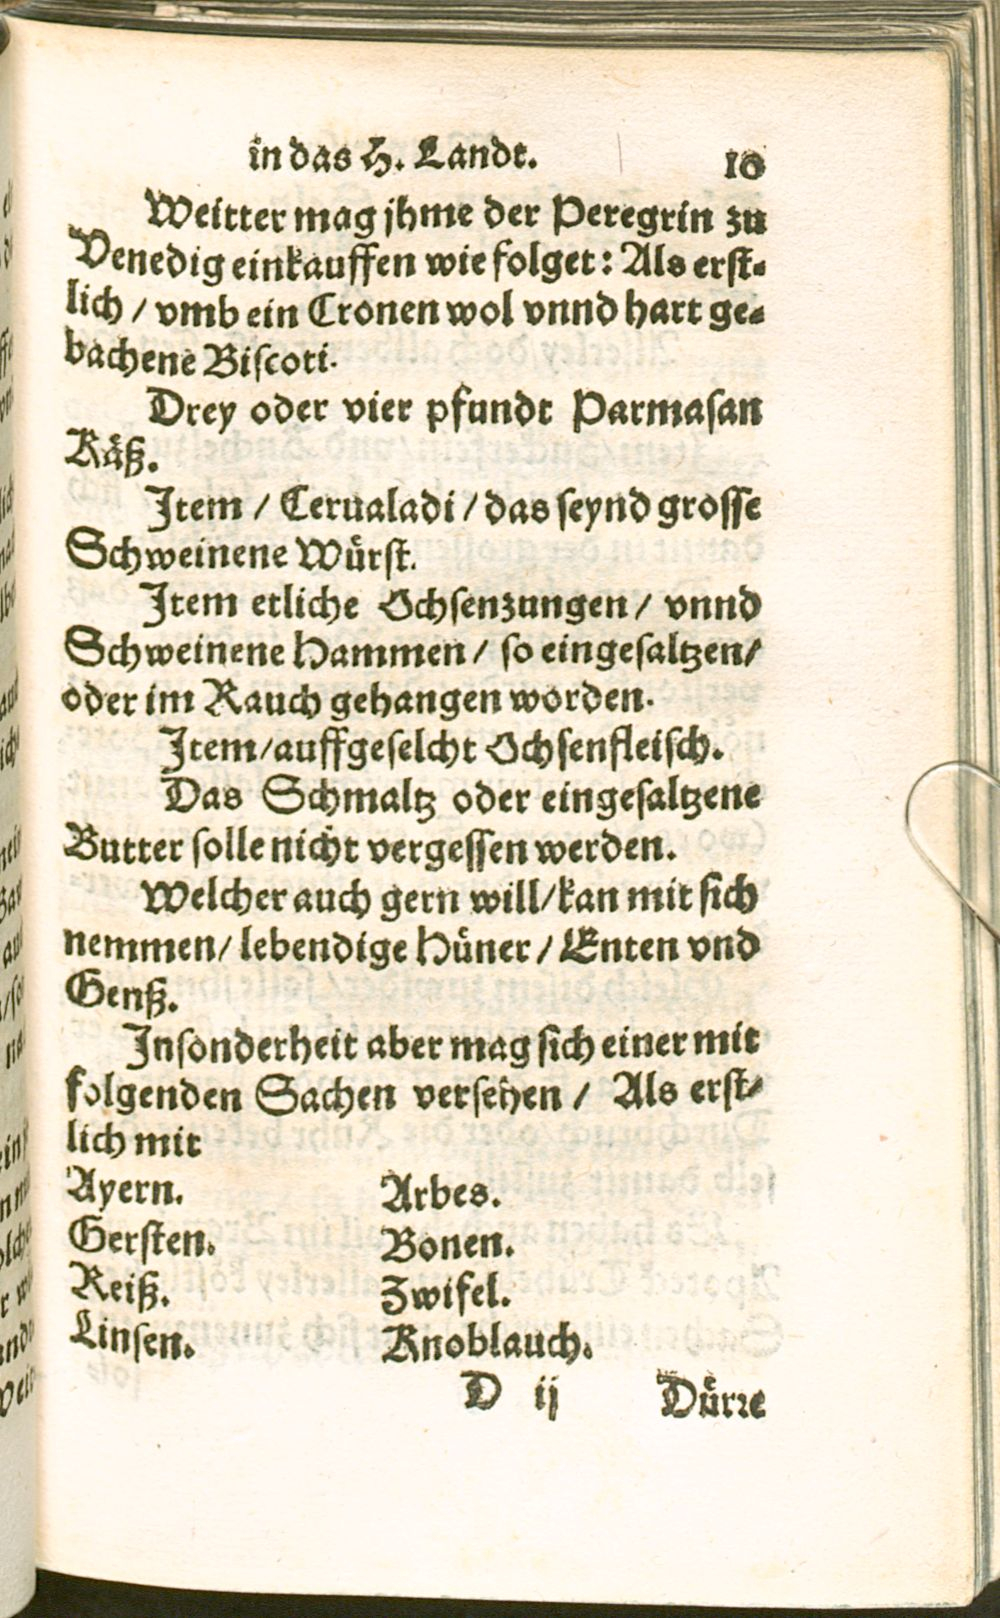 in das H. Landt. 10
Weitter mag jhme der Peregrin zu
Venedig einkauffen wie folget: Als erst-
lich / vmb ein Cronen wol vnnd hart ge-
bachene Biscoti.
Drey oder vier pfundt Parmasan
Käß.
Item / Cerualadi / das seynd grosse
Schweinene Würst.
Item etliche Ochsenzungen / vnnd
Schweinene Hammen / so eingesaltzen/
oder im Rauch gehangen worden.
Item/auffgeselcht Ochsenfleisch.
Das Schmaltz oder eingesaltzene
Butter solle nicht vergessen werden.
Welcher auch gern will/kan mit sich
nemmen/ lebendige Hüner / Enten vnd
Genß.
Insonderheit aber mag sich einer mit
folgenden Sachen versehen / Als erst-
lich mit
Ayern. Arbes.
Gersten. Bonen.
Reiß. Zwifel.
Linsen. Knoblauch.
D ij Dürre